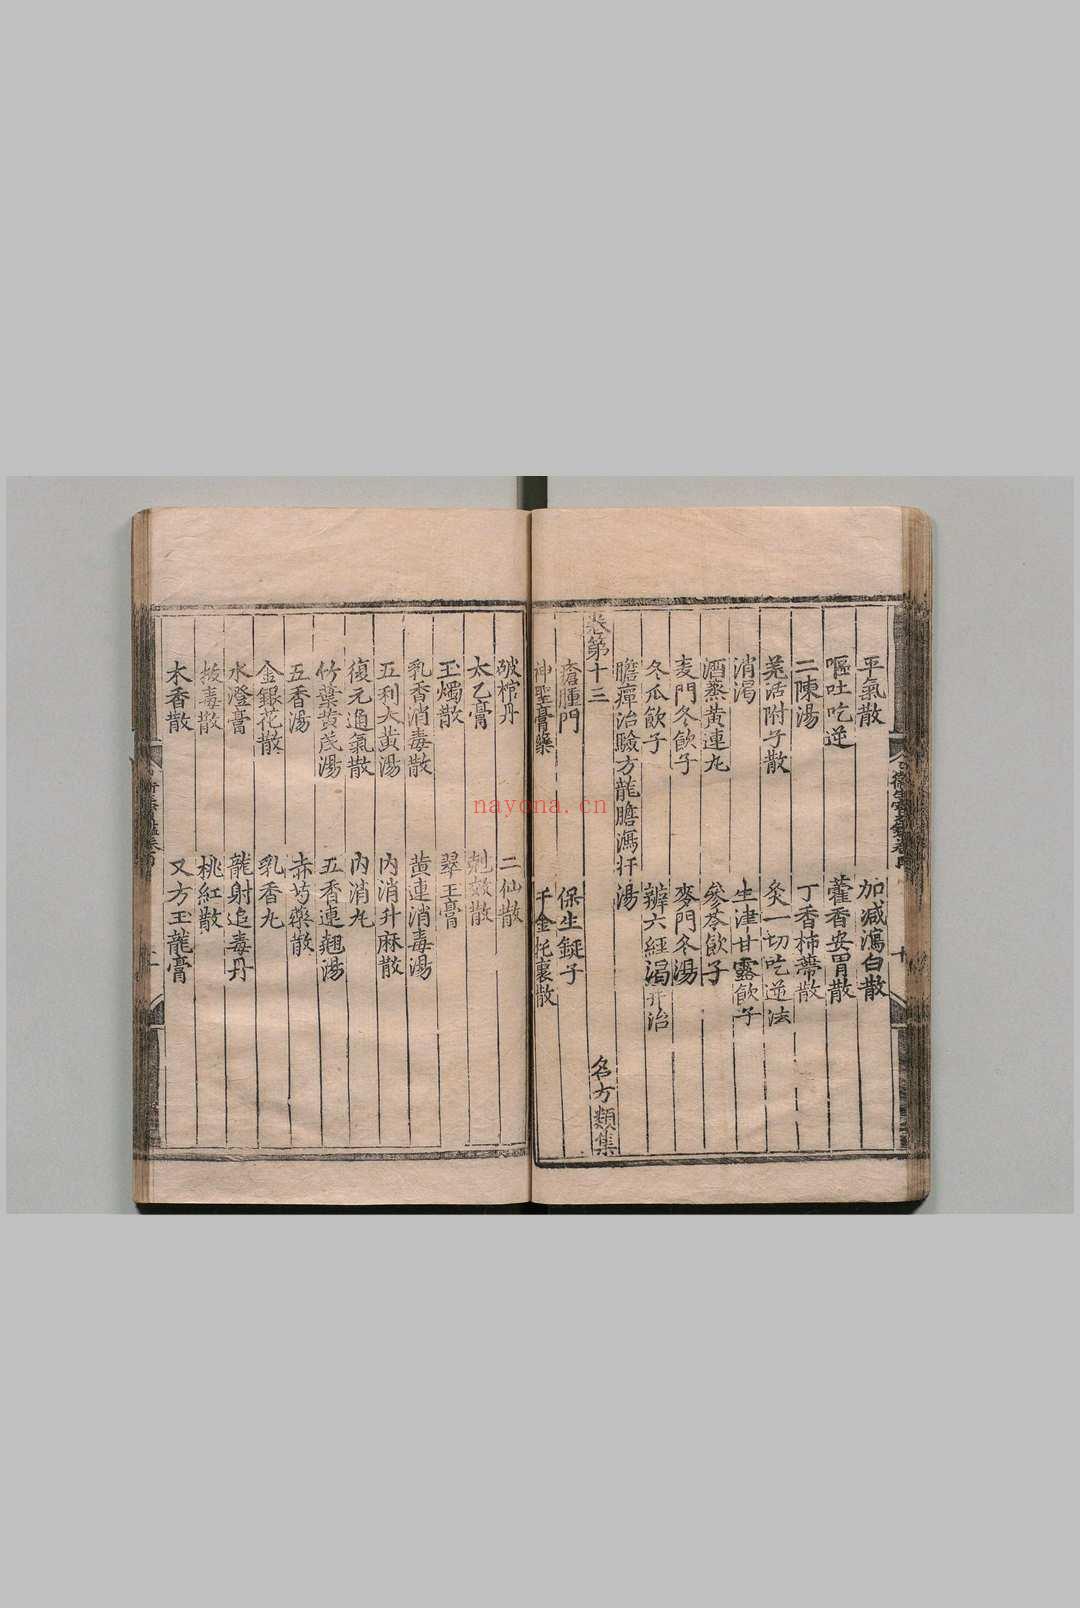 平氣散 加減瀉白散
嘔吐吃逆 藿香安胃散
二陳湯 丁香柿蔕散
羌活附子散 灸一切吃逆法
消渴 生津甘露飲子
酒蒸黃連丸 參苓飲子
麦門冬飲子 麥門冬湯
冬瓜飲子 辨六經渴并治
膽癉治驗方龍膽瀉肝湯
卷第十三 名方類集
瘡腫門 保生鋌子
神聖膏藥 千金托裏散
破棺丹 二仙散
太乙膏 剋效散
玉燭散 翠玉膏
乳香消毒散 黃連消毒湯
五利大黃湯 內消升麻散
復元通氣散 內消丸
竹葉黃芪湯 五香連翹湯
五香湯 赤芍藥散
金銀花散 乳香丸
水澄膏 龍射追毒丹
拔毒散 桃紅散
木香散 又方玉龍膏
nayona.cn